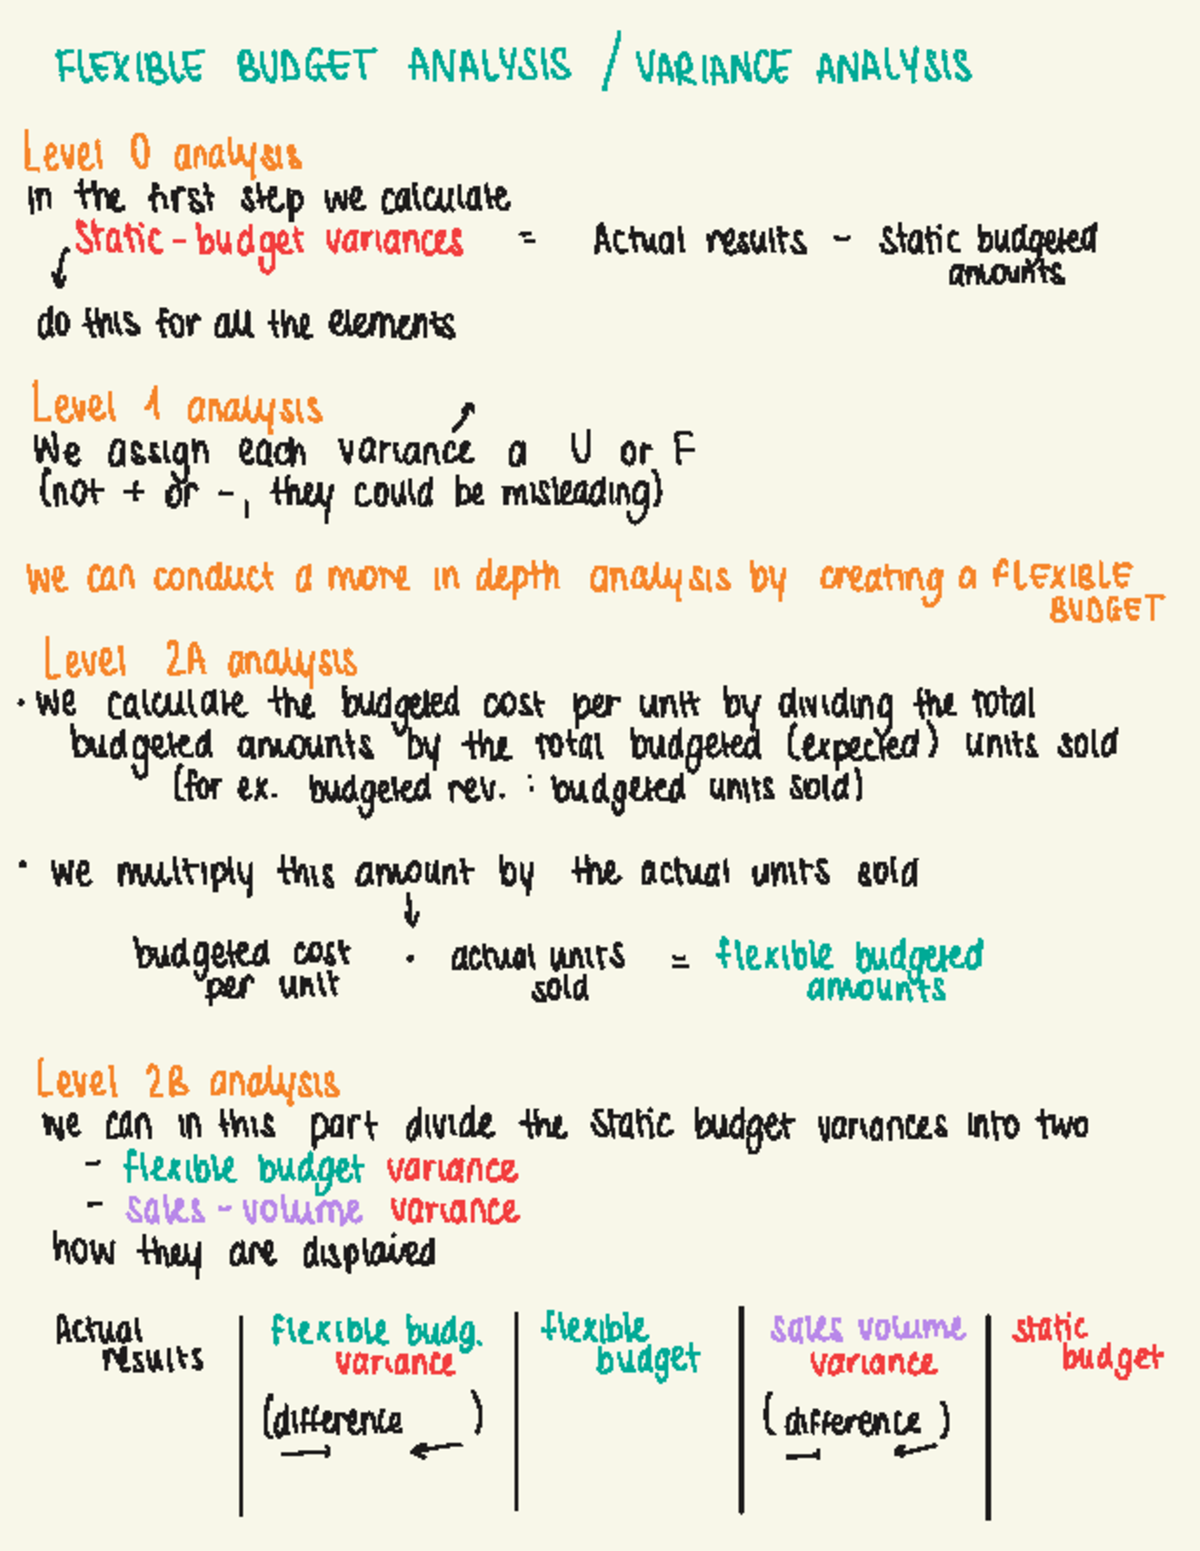 FLEXIBLE BUDGET ANALYSIS / VARIANCE ANALYSIS
Level 0 analysis
in the first step we calculate
Static-budget variances = Actual results - static budgeted
amounts
do this for all the elements
Level 1 analysis
We assign each variance a U or F
(not + or -, they could be misleading)
we can conduct a more in depth analysis by creating a FLEXIBLE
BUDGET
Level 2A analysis
· we calculate the budgeted cost per unit by dividing the total
budgeted amounts by the total budgeted (expected) units sold
(for ex. budgeted rev. : budgeted units sold)
· we multiply this amount by the actual units sold
↓
budgeted cost · actual units = flexible budgeted
per unit sold amounts
Level 2B analysis
we can in this part divide the static budget variances into two
- flexible budget variance
- sales-volume variance
how they are displaied
Actual | flexible budg. | flexible | sales volume | static
results variance budget variance budget
(difference ) (difference)